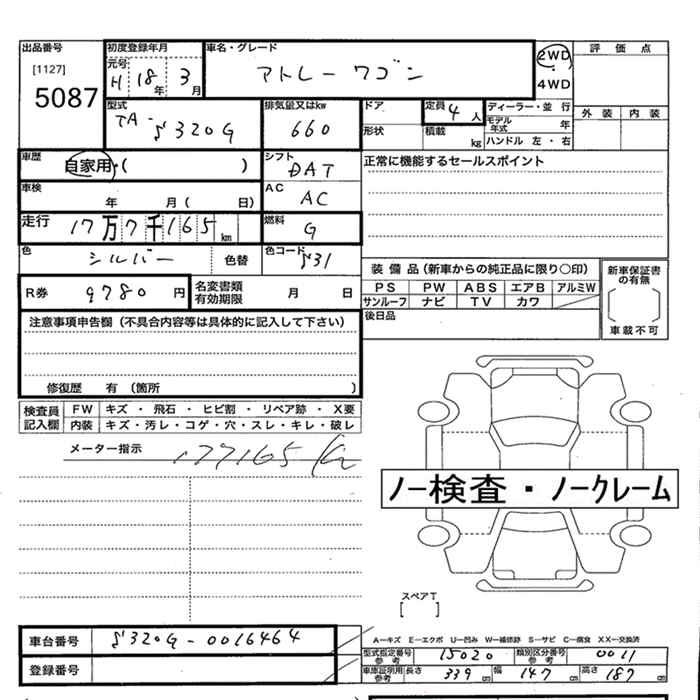 出品番号 初度登録年月 車名・グレード 評価点
[1127] 元号 H 18年 3月 アトレーワゴン 2WD
5087 4WD 外装 内装
型式 排気量又はkw ドア 定員 4人 ディーラー・並行
TA-S320G 660 形状 積載 kg モデル年式 年
ハンドル 左・右
車歴 自家用・( ) シフト DAT 正常に機能するセールスポイント
車検 年 月( 日) AC AC
走行 17万7千165km 燃料 G
色 シルバー 色替 色コード S31
装備品(新車からの純正品に限り○印) 新車保証書の有無
R券 9780円 名変書類有効期限 月 日 PS PW ABS エアB アルミW
サンルーフ ナビ TV カワ
注意事項申告欄(不具合内容等は具体的に記入して下さい) 後日品 車載不可
修復歴 有(箇所 )
検査員記入欄 FW キズ・飛石・ヒビ割・リペア跡・X要
内装 キズ・汚レ・コゲ・穴・スレ・キレ・破レ
メーター指示 177165 km
ノー検査・ノークレーム
スペアT
[ ]
車台番号 S320G-0016464 A―キズ E―エクボ U―凹み W―補修跡 S―サビ C―腐食 XX―交換済
登録番号 型式指定番号参考 15020 類別区分番号参考 0011
車庫証明用参考 長さ 339cm 幅 147cm 高さ 187cm